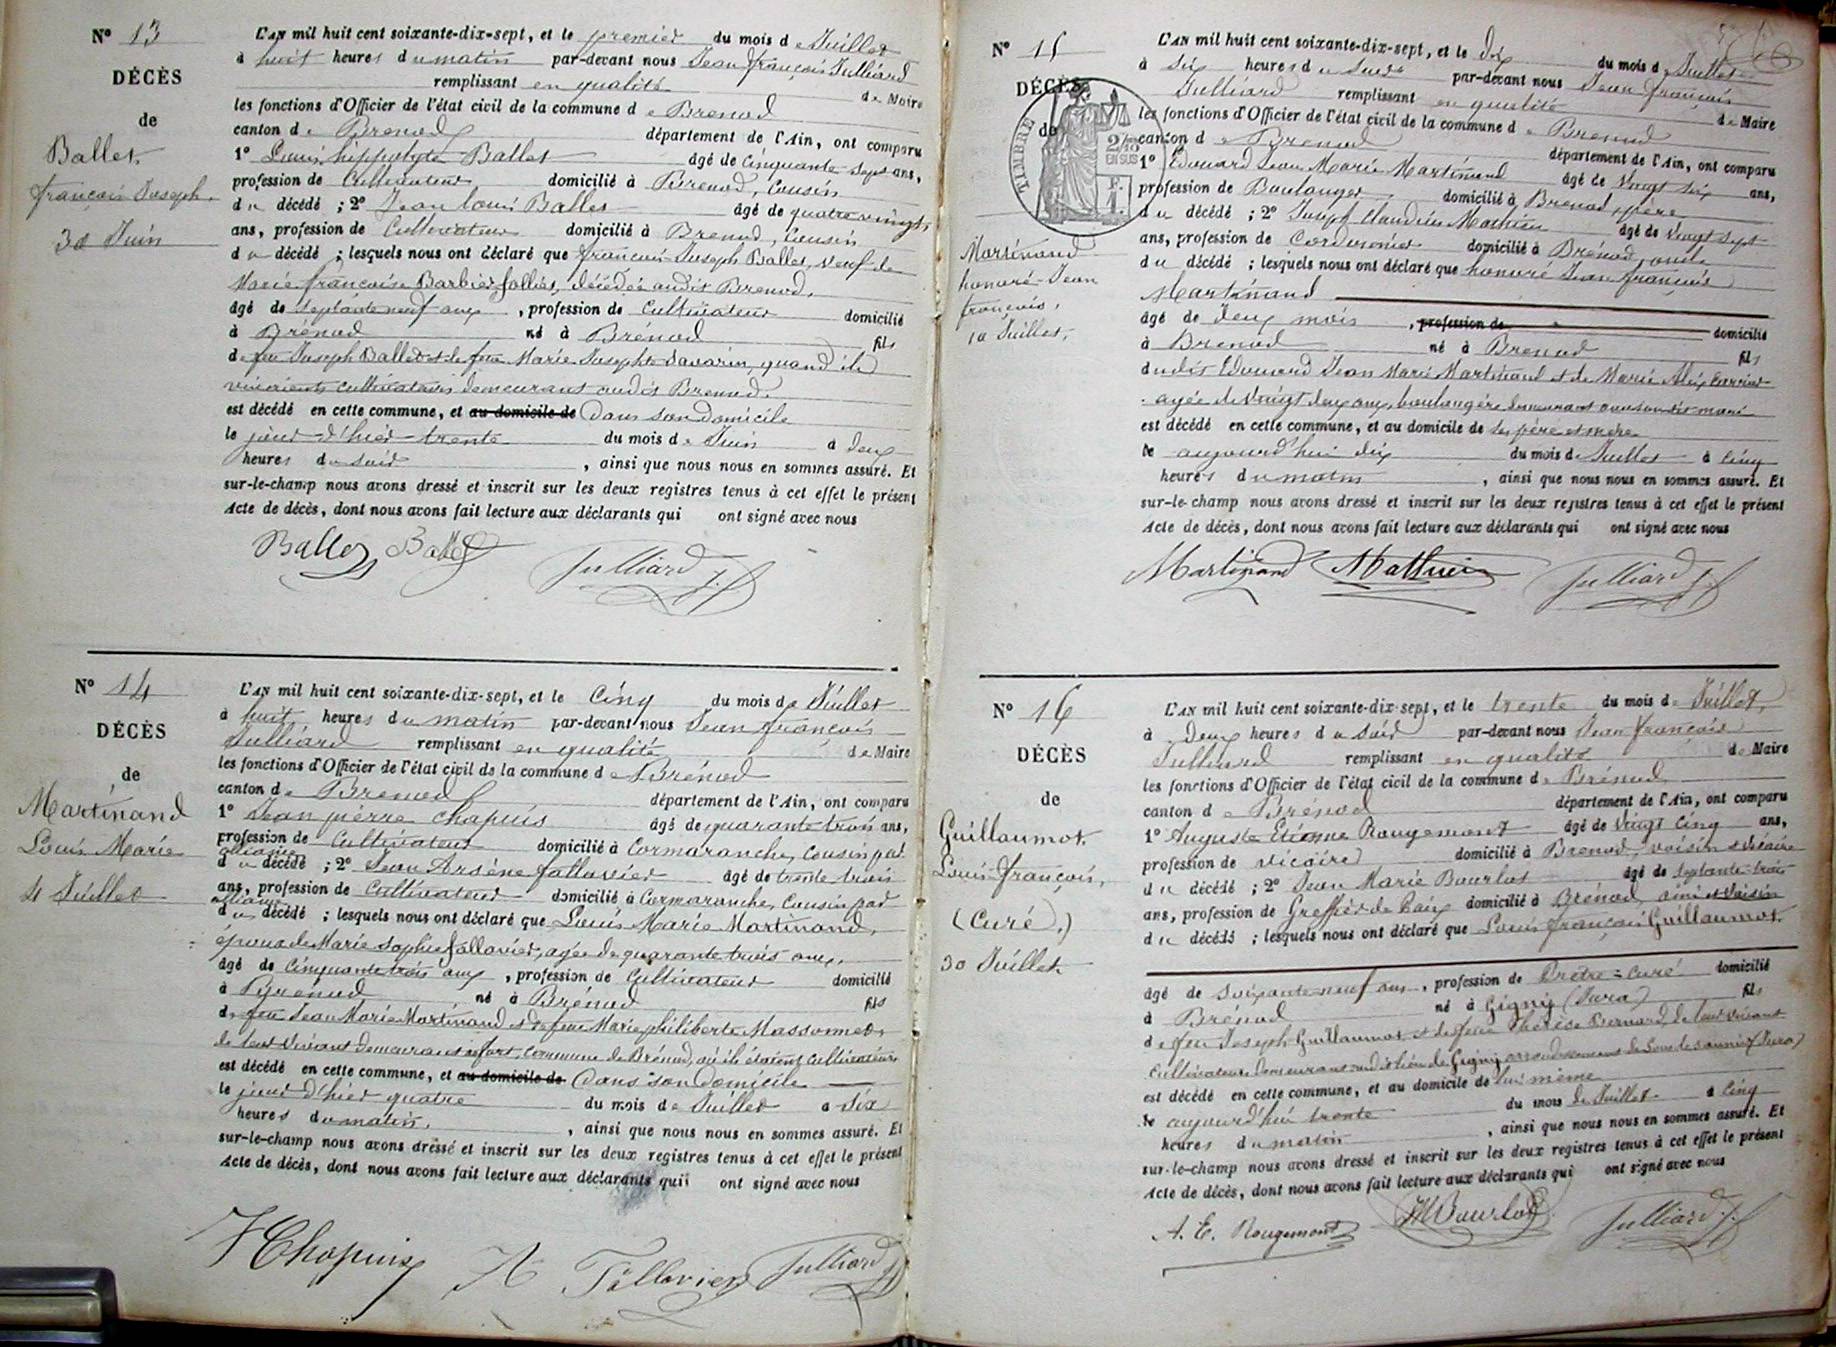 N° 13
DÉCÈS
de
Ballet
françois Joseph.
30 Juin
L'AN mil huit cent soixante-dix-sept, et le premier du mois de Juillet
à huit heures du matin par-devant nous Jean françois Julliard
remplissant en qualité de Maire
les fonctions d'Officier de l'état civil de la commune de Brenod
canton de Brenod département de l'Ain, ont comparu
1° Louis hippolyte Ballet âgé de cinquante sept ans,
profession de Cultivateur domicilié à Brenod, Cousin
du décédé ; 2° Jean Louis Ballet âgé de quatre vingt
ans, profession de Cultivateur domicilié à Brenod, Cousin
du décédé ; lesquels nous ont déclaré que françois Joseph Ballet, veuf de
Marie françoise Barbier fallier, décédée audit Brenod,
âgé de septante neuf ans, profession de Cultivateur domicilié
à Brénod né à Brénod fils
de feu Joseph Ballet et de feue Marie Josephte Savarin, quand ils
vivaient cultivateurs demeurant audit Brenod.
est décédé en cette commune, et au domicile de Dans son Domicile
le jour d'hier trente du mois de Juin à deux
heures du soir, ainsi que nous nous en sommes assuré. Et
sur-le-champ nous avons dressé et inscrit sur les deux registres tenus à cet effet le présent
Acte de décès, dont nous avons fait lecture aux déclarants qui ont signé avec nous
Ballet Ballet Julliard J.f.
N° 14
DÉCÈS
de
Martinand
Louis Marie
4 Juillet
L'AN mil huit cent soixante-dix-sept, et le Cinq du mois de Juillet
à huit heures du matin par-devant nous Jean françois
Julliard remplissant en qualité de Maire
les fonctions d'Officier de l'état civil de la commune de Brénod
canton de Brenod département de l'Ain, ont comparu
1° Jean pierre Chapuis âgé de quarante trois ans,
profession de Cultivateur domicilié à Cormaranche, Cousin par
alliance
du décédé ; 2° Jean Arsène fallavier âgé de trente trois
ans, profession de Cultivateur domicilié à Cormaranche, Cousin par
alliance
du décédé ; lesquels nous ont déclaré que Louis Marie Martinand,
époux de Marie Sophie fallavier, agée de quarante trois ans,
âgé de Cinquante trois ans, profession de Cultivateur domicilié
à Brénod né à Brénod fils
de feu Jean Marie Martinand et de feue Marie philiberte Massonnet,
de leur vivant demeurant, commune de Brénod, où ils étaient cultivateurs
est décédé en cette commune, et au domicile de Dans son Domicile
le jour d'hier quatre du mois de Juillet à Six
heures du matin, ainsi que nous nous en sommes assuré. Et
sur-le-champ nous avons dressé et inscrit sur les deux registres tenus à cet effet le présent
Acte de décès, dont nous avons fait lecture aux déclarants qui ont signé avec nous
Chapuis A Fallavier Julliard J.f.
N° 15
DÉCÈS
de
TIMBRE
2/10
EN SUS
F.
1.
Martinand
honoré Jean
françois,
10 Juillet,
L'AN mil huit cent soixante-dix-sept, et le dix du mois de Juillet
à six heures du soir par-devant nous Jean françois
Julliard remplissant en qualité de Maire
les fonctions d'Officier de l'état civil de la commune de Brenod
canton de Brenod département de l'Ain, ont comparu
1° Edouard Jean Marie Martinand âgé de Vingt six ans,
profession de Boulanger domicilié à Brenod, père
du décédé ; 2° Joseph Claudius Mathieu âgé de Vingt sept
ans, profession de Cordonnier domicilié à Brénod, oncle
du décédé ; lesquels nous ont déclaré que honoré Jean françois
Martinand
âgé de Deux mois, profession de domicilié
à Brenod né à Brenod fils
dudit Edouard Jean Marie Martinand et de Marie
agée de vingt deux ans, boulangère demeurant avec son dit mari
est décédé en cette commune, et au domicile de ses père et mère
le aujourd'hui dix du mois de Juillet à Cinq
heures du matin, ainsi que nous nous en sommes assuré. Et
sur-le-champ nous avons dressé et inscrit sur les deux registres tenus à cet effet le présent
Acte de décès, dont nous avons fait lecture aux déclarants qui ont signé avec nous
Martinand Mathieu Julliard J.f.
N° 16
DÉCÈS
de
Guillaumot.
Louis françois,
(Curé.)
30 Juillet
L'AN mil huit cent soixante-dix-sept, et le trente du mois de Juillet,
à Deux heures du soir par-devant nous Jean françois
Julliard remplissant en qualité de Maire
les fonctions d'Officier de l'état civil de la commune de Brénod
canton de Brénod département de l'Ain, ont comparu
1° Auguste Etienne Rougemont âgé de Vingt Cinq ans,
profession de vicaire domicilié à Brenod, voisin et vicaire
du décédé ; 2° Jean Marie Bourlot âgé de septante trois
ans, profession de Greffier de Paix domicilié à Brénod, ami et voisin
du décédé ; lesquels nous ont déclaré que Louis françois Guillaumot
âgé de soixante neuf ans, profession de Prêtre-Curé domicilié
à Brénod né à Gigny (Jura) fils
de feu Joseph Guillaumot et de feue Thérèse Bernard, de leur vivant
Cultivateurs demeurant audit lieu de Gigny arrondissement de Lons le saunier (Jura)
est décédé en cette commune, et au domicile de lui même
le aujourd'hui trente du mois de Juillet à Cinq
heures du matin, ainsi que nous nous en sommes assuré. Et
sur-le-champ nous avons dressé et inscrit sur les deux registres tenus à cet effet le présent
Acte de décès, dont nous avons fait lecture aux déclarants qui ont signé avec nous
A. E. Rougemont JMBourlot Julliard J.f.